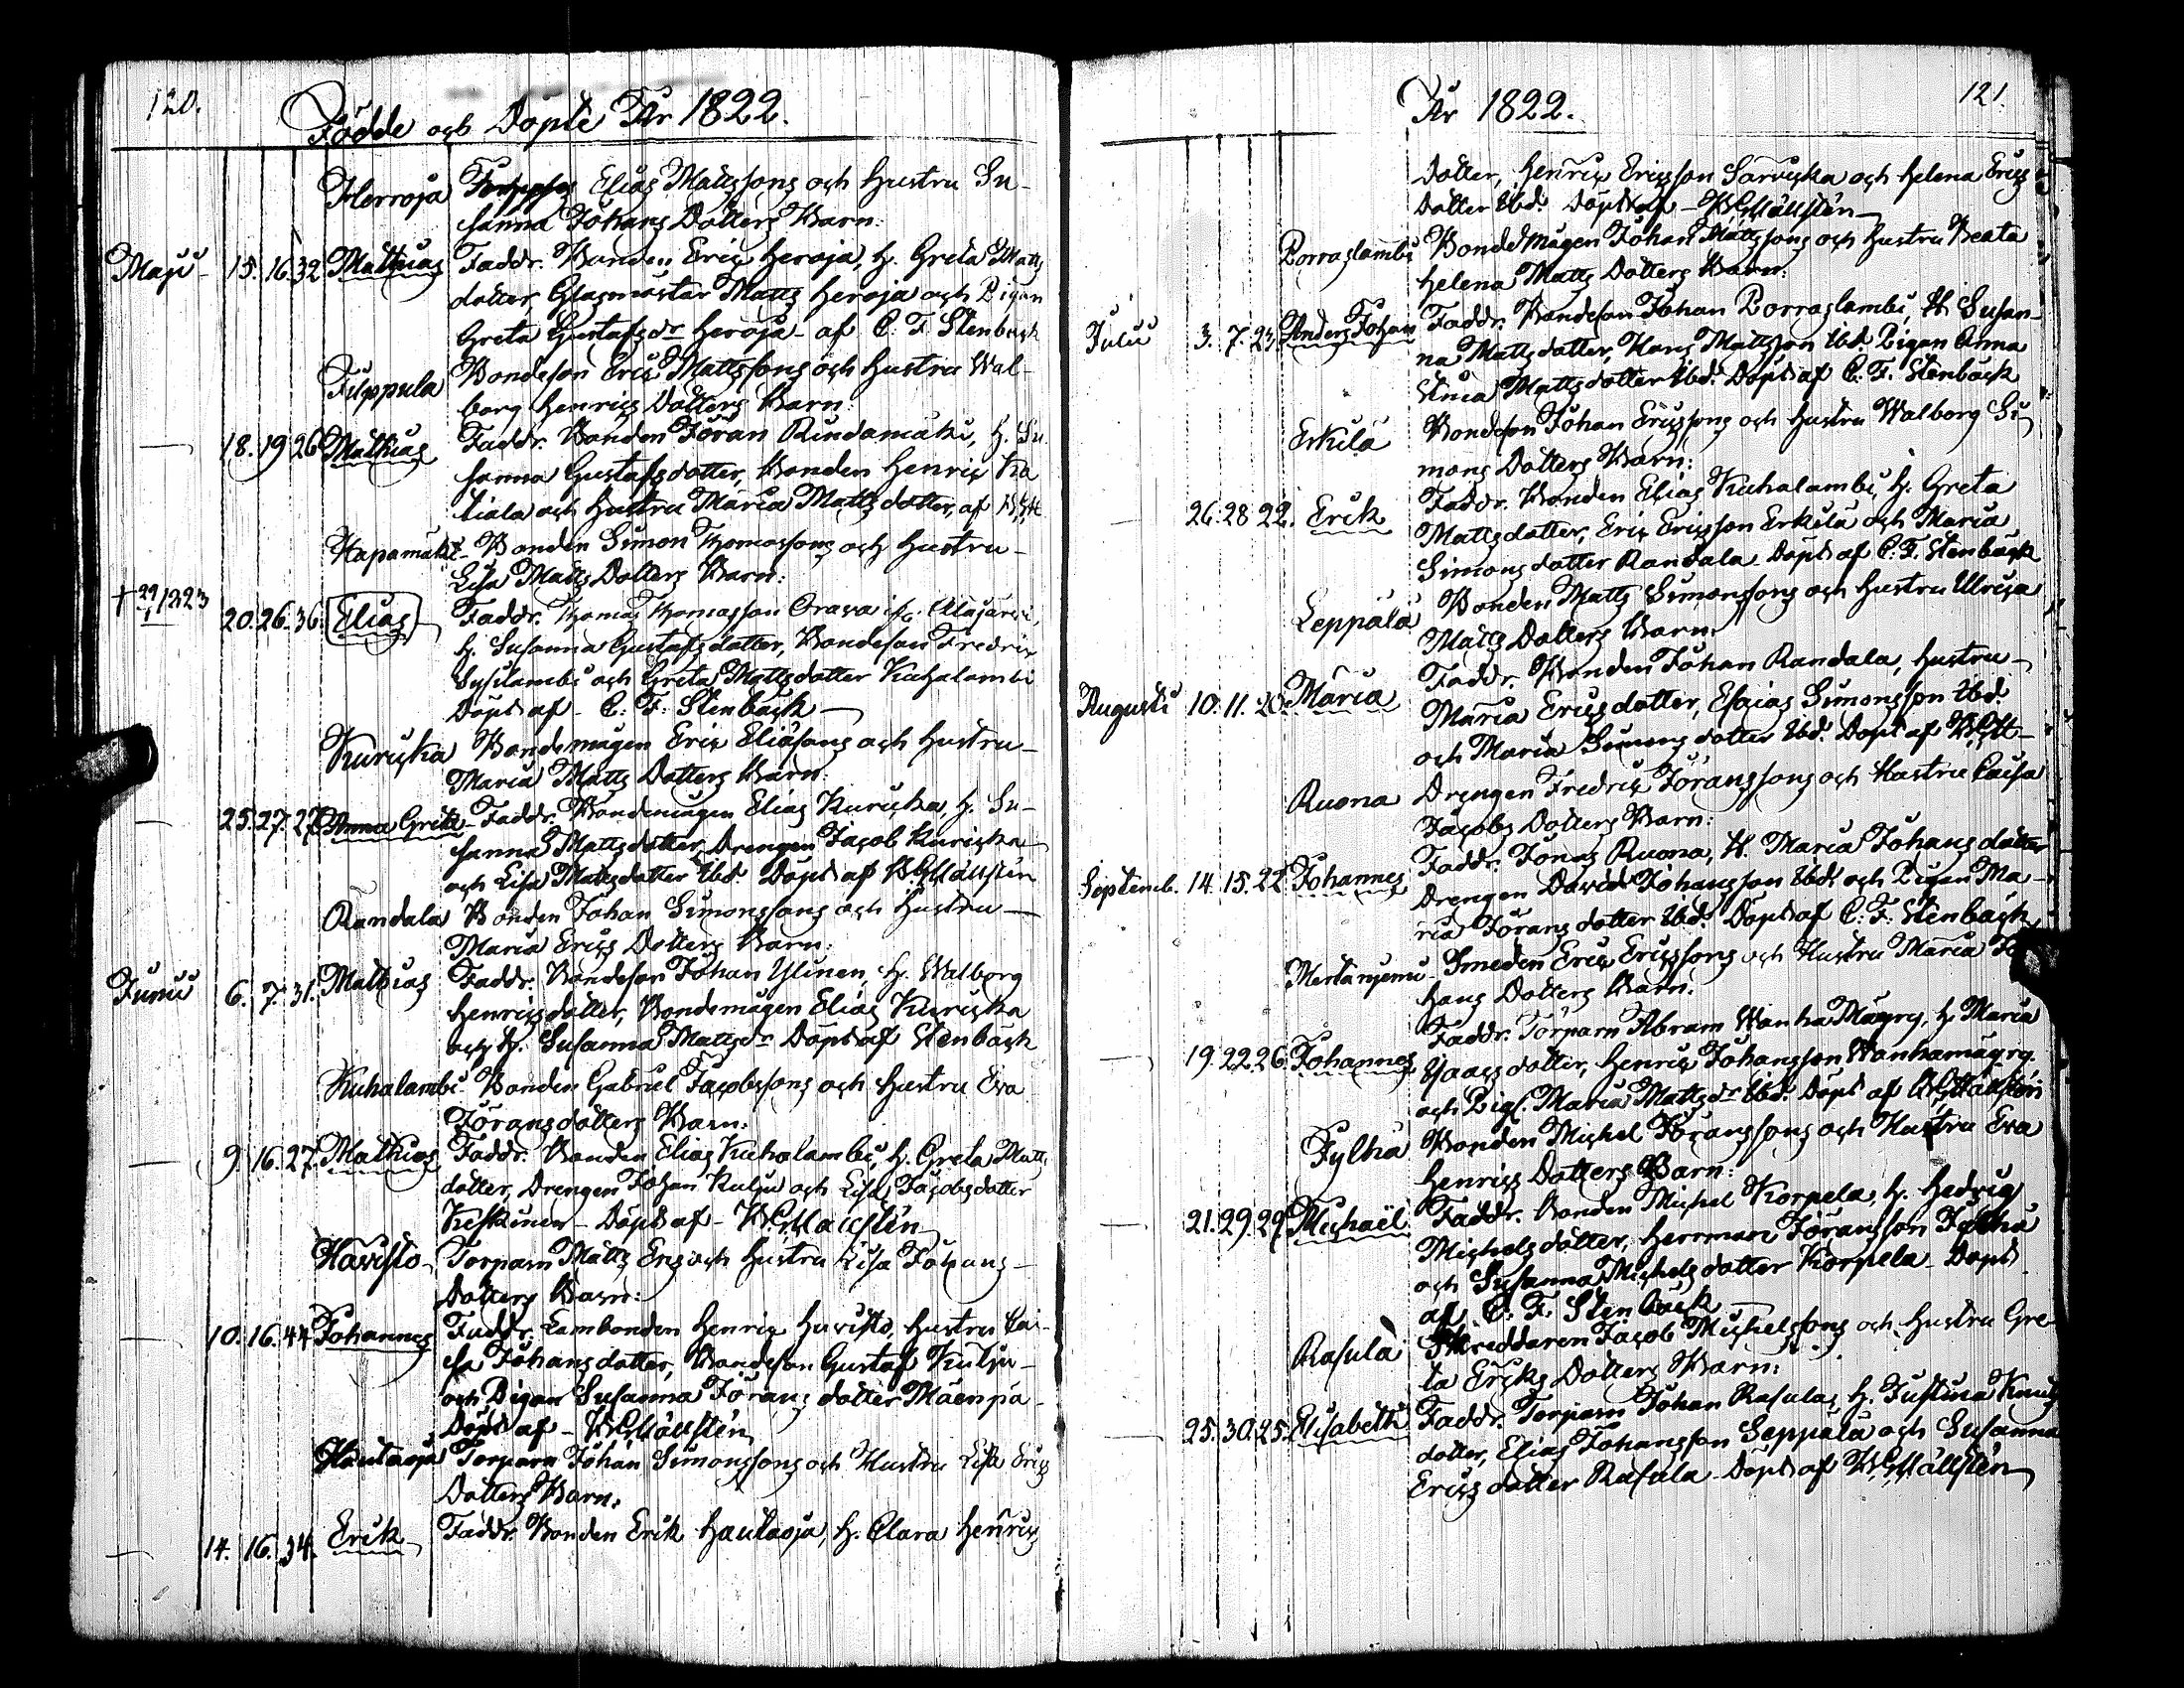 120.
Födde och Döpte År 1822.
Herroja Elias Mattssons och Hustru Su-
sanna Johans Dotters Barn:
Maji 15. 16. 32 Mathias Faddr. Bonden Eric Heroja, H. Greta Matts
dotter, Glasmästar Matts Heroja och Pigan
Greta Gustafsdr Heroja - af C. F. Stenbäck
Filppula Bondeson Eric Mattssons och Hustru Wal-
borg Henrics Dotters Barn:
— 18. 19 26 Mathias Faddr. Bonden Jöran Rindamäki, H. Su
sanna Gustafsdotter, Bonden Henric Ka
tiala och Hustru Maria Mattsdotter, af
Hapamäki - Bonden Simon Thomassons och Hustru -
Lisa Matts Dotters Barn:
† 29/1 1823 20. 26. 36. Elias Faddr. Thomas Thomasson Orava ifr. Alajärvi,
H. Susanna Gustafsdotter, Bondeson Fredric
Sysilambi och Greta Mattsdotter Kuhalambi
Döpt af - C: F: Stenbäck —
Kuricka Bondemågen Eric Eliasons och Hustru -
Maria Matts Dotters Barn:
— 25. 27. 27 Anna Greta - Faddr. Bondemågen Elias Kuricka, H. Su-
sanna Mattsdotter, Drengen Jacob Kuricka
och Lisa Mattsdotter Ibd. Döpt af Wällstén
Randala Bonden Johan Simonssons och Hustru —
Maria Erics Dotters Barn:
Junii 6. 7. 31. Mathias Faddr. Bondeson Johan Ylinen, H. Walborg
Henricsdotter, Bondemågen Elias Kuricka
och H. Susanna Mattsdr Döpt af Stenbäck
Kuhalambi - Bonden Gabriel Jacobssons och Hustru Eva
Göransdotters Barn:
— 9. 16. 27. Mathias Faddr. Bonden Elias Kuhalambi, H. Greta Matts
dotter, Drengen Johan Kulju och Lisa Jacobsdotter
Keskinen - Döpt af - Wällstén
Havisto - Torparn Matts Ers och Hustru Lisa Johans -
Dotters Barn:
— 10. 16. 44 Johannes Faddr. Lambonden Henric Havisto, Hustru Cai-
sa Johansdotter, Bondeson Gustaf Kulju -
och Pigan Susanna Jörans dotter Mäenpä -
Döpt af - Wällstén
Hautaoja Torparn Johan Simonssons och Hustru Lisa Erics
Dotters Barn:
— 14. 16. 34. Erik Faddr. Bonden Erik Hautaoja, H. Clara Henrics
År 1822.
121.
dotter, Henric Ericsson Sarvicka och Helena Erics
dotter Ibd. Döpt af - Wällstén -
Porraslambi Bondemågen Johan Mattssons och Hustru Beata
Helena Matts Dotters Barn:
Julii 3. 7. 23. Anders Johan Faddr. Bondeson Johan Porraslambi, H. Susan-
na Mattsdotter, Hans Mattsson Ibd. Pigan Anna
Stina Mattsdotter Ibd. Döpt af C. F. Stenbäck
Erkilä Bondeson Johan Ericssons och Hustru Walborg Si
mons Dotters Barn:
— 26. 28 22. Erik Faddr. Bonden Elias Kuhalambi, H. Greta
Mattsdotter, Eric Ericsson Erkilä och Maria
Simonsdotter Randala - Döpt af C. F. Stenbäck
Leppälä Bonden Matts Simonssons och Hustru Ulrica
Matts Dotters Barn:
Augusti 10. 11. 20. Maria Faddr. Bonden Johan Randala, Hustru -
Maria Ericsdotter, Esaias Simonsson Ibd.
och Maria Simonsdotter Ibd. Döpt af
Ruona Drengen Fredric Jöranssons och Hustru Caisa
Jacobs Dotters Barn:
Septemb. 14. 15. 22. Johannes Faddr. Jonas Ruona, H. Maria Johansdotter
Drengen David Johansson Ibd. och Pigan Ma-
ria Jöransdotter Ibd. Döpt af C. F. Stenbäck
Smeden Eric Ericssons och Hustru Maria Jo
hans Dotters Barn:
— 19. 22. 26. Johannes Faddr. Torparn Abram Wanha Mäyry, H. Maria
Isaacsdotter, Henric Johansson Wanhamäyry.
och Pigl. Maria Mattsdr Ibd. Döpt af Wällstén
Jylhä Bonden Michel Jöranssons och Hustru Eva
Henrics Dotters Barn:
— 21. 29. 29. Michaël Faddr. Bonden Michel Korpela, H. Hedvig
Michelsdotter, Herrman Jöransson Jylhä
och Susanna Michelsdotter Korpela - Döpt
af, C. F. Stenbäck
Rasula Skreddaren Jacob Michelssons och Hustru Gre-
ta Ericks Dotters Barn:
— 25. 30. 25. Elisabeth Faddr. Torparn Johan Rasula, H. Justina Knuts
dotter, Elias Johansson Seppälä och Susanna
Ericsdotter Rasula - Döpt af Wällstén